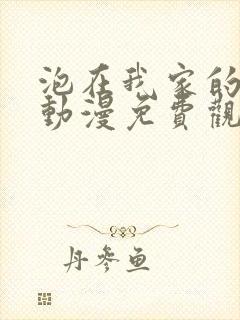 泡在我家的
動漫免費觀
丹參魚